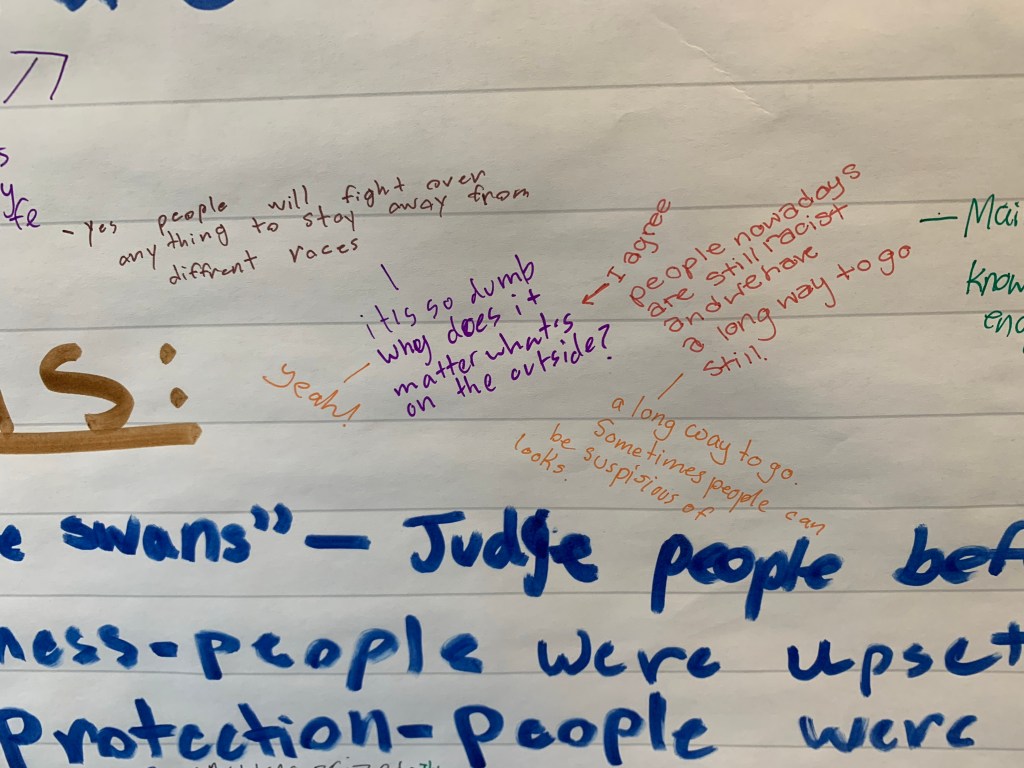 s
y
fe
- yes people will fight over
any thing to stay away from
diffrent races
itis so dumb
why does it
matter what's
on the outside?
yeah!
I agree
people nowadays
are still racist
and we have
a long way to go
still.
a long way to go.
Sometimes people can
be suspisious of
looks.
- Mai
Know
s:
e swans" - Judge people bef
ness - people were upset
Protection - People were